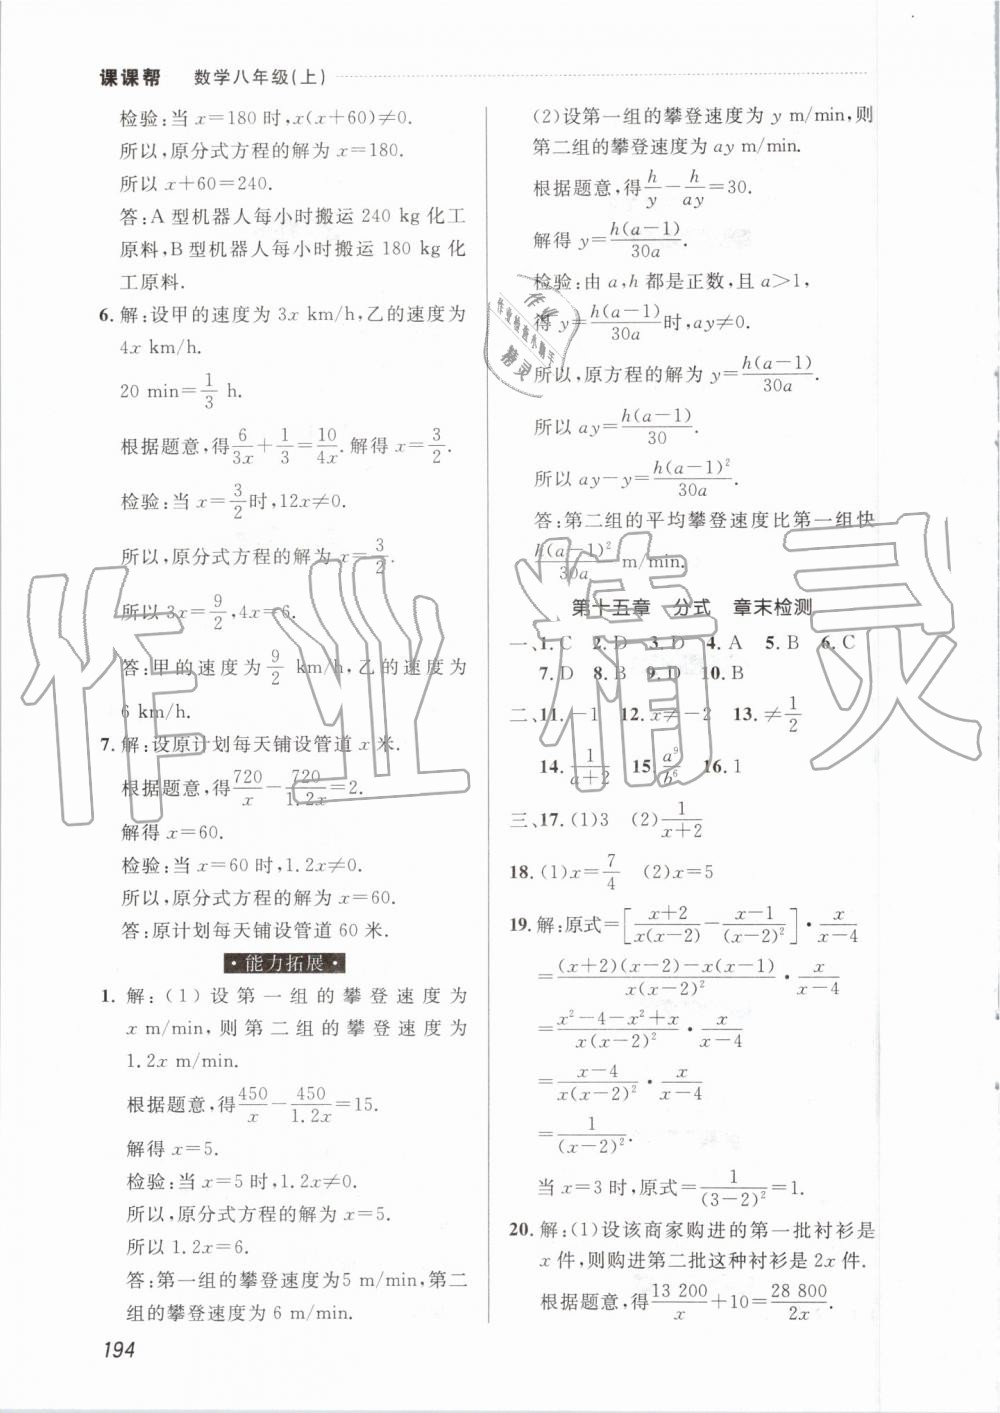 课课帮 数学八年级(上)
检验:当 x=180 时,x(x+60)≠0.
所以,原分式方程的解为 x=180.
所以 x+60=240.
答:A 型机器人每小时搬运 240 kg 化工
原料,B 型机器人每小时搬运 180 kg 化
工原料.
6. 解:设甲的速度为 3x km/h,乙的速度为
4x km/h.
20 min=1/3 h.
根据题意,得 6/3x + 1/3 = 10/4x. 解得 x=3/2.
检验:当 x=3/2 时,12x≠0.
所以,原分式方程的解为 x=3/2.
所以 3x=9/2,4x=6.
答:甲的速度为 9/2 km/h,乙的速度为
6 km/h.
7. 解:设原计划每天铺设管道 x 米.
根据题意,得 720/x - 720/1.2x = 2.
解得 x=60.
检验:当 x=60 时,1.2x≠0.
所以,原分式方程的解为 x=60.
答:原计划每天铺设管道 60 米.
·能力拓展·
1. 解:(1)设第一组的攀登速度为
x m/min,则第二组的攀登速度为
1.2x m/min.
根据题意,得 450/x - 450/1.2x = 15.
解得 x=5.
检验:当 x=5 时,1.2x≠0.
所以,原分式方程的解为 x=5.
所以 1.2x=6.
答:第一组的攀登速度为5 m/min,第二
组的攀登速度为 6 m/min.
194
(2)设第一组的攀登速度为 y m/min,则
第二组的攀登速度为 ay m/min.
根据题意,得 h/y - h/ay = 30.
解得 y = h(a-1)/30a.
检验:由 a,h 都是正数,且 a>1,
得 y = h(a-1)/30a 时,ay≠0.
所以,原方程的解为 y = h(a-1)/30a.
所以 ay = h(a-1)/30.
所以 ay-y = h(a-1)²/30a.
答:第二组的平均攀登速度比第一组快
h(a-1)²/30a m/min.
第十五章 分式 章末检测
一、1. C 2. D 3. D 4. A 5. B 6. C
7. D 8. B 9. D 10. B
二、11. -1 12. x≠-2 13. ≠1/2
14. 1/(a+2) 15. a⁹/b⁶ 16. 1
三、17. (1)3 (2)1/(x+2)
18. (1)x=7/4 (2)x=5
19. 解:原式=[(x+2)/x(x-2) - (x-1)/(x-2)²]·x/(x-4)
=((x+2)(x-2)-x(x-1))/x(x-2)²·x/(x-4)
=(x²-4-x²+x)/x(x-2)²·x/(x-4)
=(x-4)/x(x-2)²·x/(x-4)
=1/(x-2)².
当 x=3 时,原式=1/(3-2)²=1.
20. 解:(1)设该商家购进的第一批衬衫是
x 件,则购进第二批这种衬衫是 2x 件.
根据题意,得 13 200/x + 10 = 28 800/2x.
作业精灵
作业
作业检查小助手
精灵